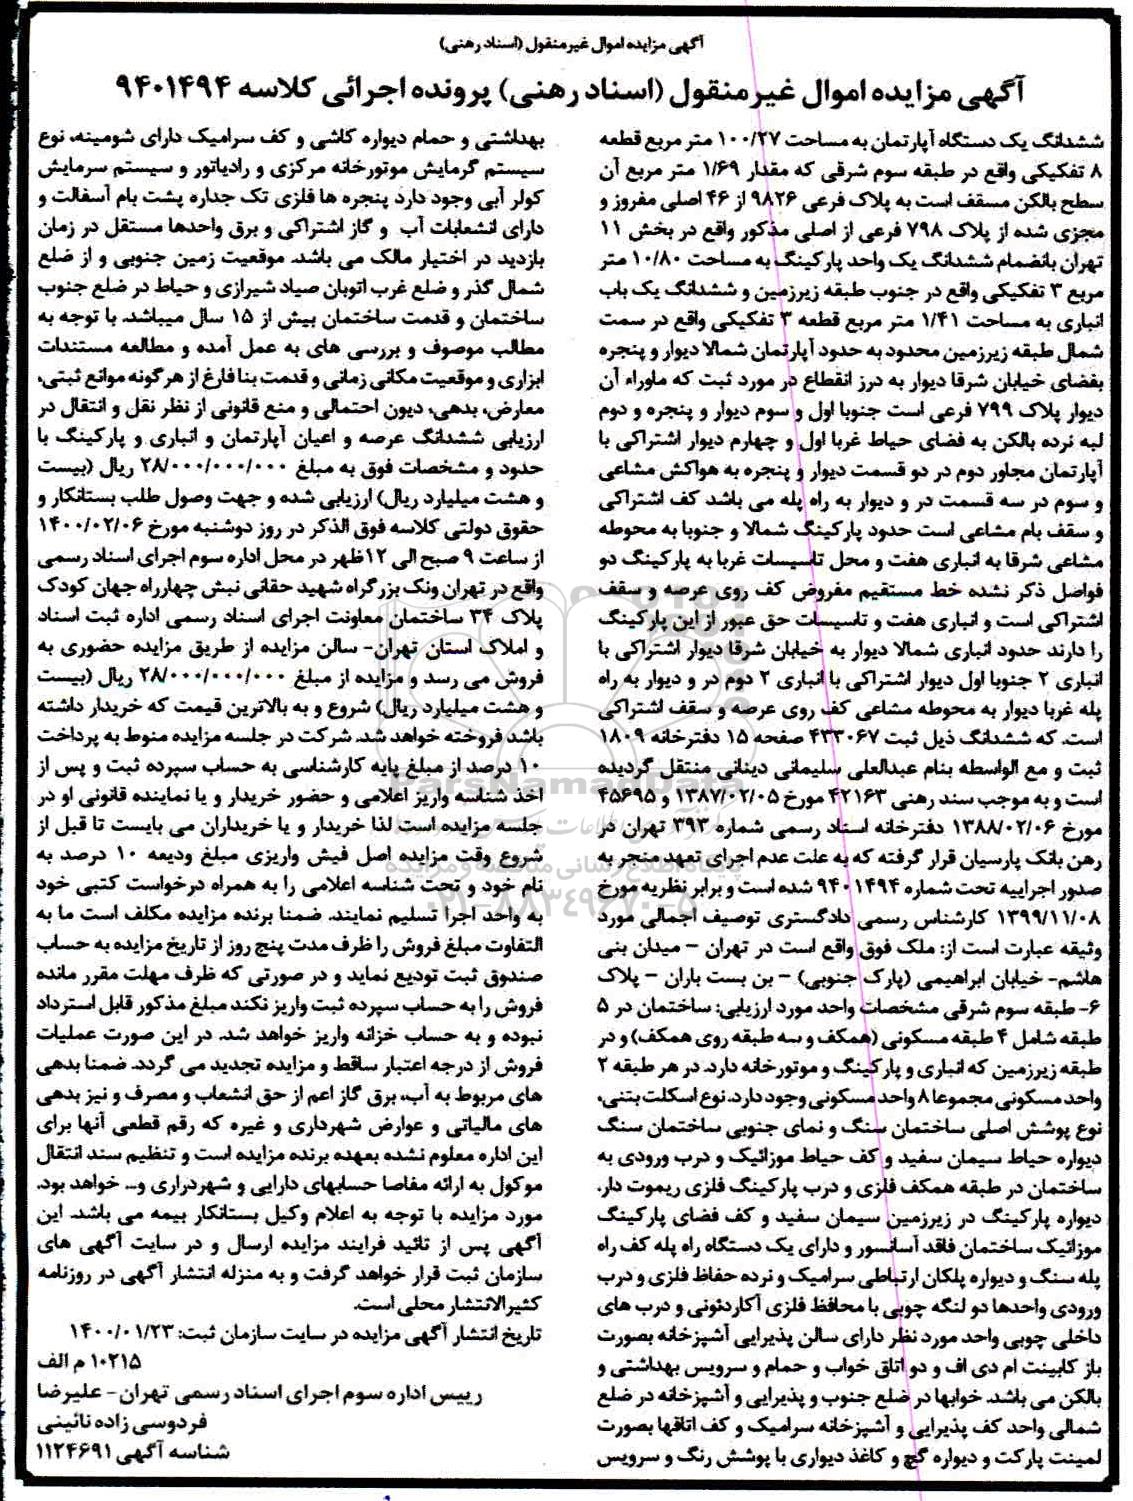 آگهی مزایده اموال غیرمنقول (اسناد رهنی)
آگهی مزایده اموال غیرمنقول (اسناد رهنی) پرونده اجرائی کلاسه ۹۴۰۱۴۹۴
ششدانگ یک دستگاه آپارتمان به مساحت ۱۰۰/۲۷ متر مربع قطعه
۸ تفکیکی واقع در طبقه سوم شرقی که مقدار ۱/۶۹ متر مربع آن
سطح بالکن مسقف است به پلاک فرعی ۹۸۲۶ از ۴۶ اصلی مفروز و
مجزی شده از پلاک ۷۹۸ فرعی از اصلی مذکور واقع در بخش ۱۱
تهران بانضمام ششدانگ یک واحد پارکینگ به مساحت ۱۰/۸۰ متر
مربع ۳ تفکیکی واقع در جنوب طبقه زیرزمین و ششدانگ یک باب
انباری به مساحت ۱/۴۱ متر مربع قطعه ۳ تفکیکی واقع در سمت
شمال طبقه زیرزمین محدود به حدود آپارتمان شمالا دیوار و پنجره
بفضای خیابان شرقا دیوار به درز انقطاع در مورد ثبت که ماوراء آن
دیوار پلاک ۷۹۹ فرعی است جنوبا اول و سوم دیوار و پنجره و دوم
لبه نرده بالکن به فضای حیاط غربا اول و چهارم دیوار اشتراکی با
آپارتمان مجاور دوم در دو قسمت دیوار و پنجره به هواکش مشاعی
و سوم در سه قسمت در و دیوار به راه پله می باشد کف اشتراکی
و سقف بام مشاعی است حدود پارکینگ شمالا و جنوبا به محوطه
مشاعی شرقا به انباری هفت و محل تاسیسات غربا به پارکینگ دو
فواصل ذکر نشده خط مستقیم مفروض کف روی عرصه و سقف
اشتراکی است و انباری هفت و تاسیسات حق عبور از این پارکینگ
را دارند حدود انباری شمالا دیوار به خیابان شرقا دیوار اشتراکی با
انباری ۲ جنوبا اول دیوار اشتراکی با انباری ۲ دوم در و دیوار به راه
پله غربا دیوار به محوطه مشاعی کف روی عرصه و سقف اشتراکی
است. که ششدانگ ذیل ثبت ۴۳۳۰۶۷ صفحه ۱۵ دفترخانه ۱۸۰۹
ثبت و مع الواسطه بنام عبدالعلی سلیمانی دینانی منتقل گردیده
است و به موجب سند رهنی ۴۲۱۶۳ مورخ ۱۳۸۷/۰۲/۰۵ و ۴۵۶۹۵
مورخ ۱۳۸۸/۰۲/۰۶ دفترخانه اسناد رسمی شماره ۳۹۳ تهران در
رهن بانک پارسیان قرار گرفته که به علت عدم اجرای تعهد منجر به
صدور اجراییه تحت شماره ۹۴۰۱۴۹۴ شده است و برابر نظریه مورخ
۱۳۹۹/۱۱/۰۸ کارشناس رسمی دادگستری توصیف اجمالی مورد
وثیقه عبارت است از: ملک فوق واقع است در تهران – میدان بنی
هاشم- خیابان ابراهیمی (پارک جنوبی) – بن بست باران – پلاک
۶- طبقه سوم شرقی مشخصات واحد مورد ارزیابی: ساختمان در ۵
طبقه شامل ۴ طبقه مسکونی (همکف و سه طبقه روی همکف) و در
طبقه زیرزمین که انباری و پارکینگ و موتورخانه دارد. در هر طبقه ۲
واحد مسکونی مجموعا ۸ واحد مسکونی وجود دارد. نوع اسکلت بتنی،
نوع پوشش اصلی ساختمان سنگ و نمای جنوبی ساختمان سنگ
دیواره حیاط سیمان سفید و کف حیاط موزائیک و درب ورودی به
ساختمان در طبقه همکف فلزی و درب پارکینگ فلزی ریموت دار.
دیواره پارکینگ در زیرزمین سیمان سفید و کف فضای پارکینگ
موزائیک ساختمان فاقد آسانسور و دارای یک دستگاه راه پله کف راه
پله سنگ و دیواره پلکان ارتباطی سرامیک و نرده حفاظ فلزی و درب
ورودی واحدها دو لنگه چوبی با محافظ فلزی آکاردئونی و درب های
داخلی چوبی واحد مورد نظر دارای سالن پذیرایی آشپزخانه بصورت
باز کابینت ام دی اف و دو اتاق خواب و حمام و سرویس بهداشتی و
بالکن می باشد. خوابها در ضلع جنوب و پذیرایی و آشپزخانه در ضلع
شمالی واحد کف پذیرایی و آشپزخانه سرامیک و کف اتاقها بصورت
لمینت پارکت و دیواره گچ و کاغذ دیواری با پوشش رنگ و سرویس
بهداشتی و حمام دیواره کاشی و کف سرامیک دارای شومینه، نوع
سیستم گرمایش موتورخانه مرکزی و رادیاتور و سیستم سرمایش
کولر آبی وجود دارد پنجره ها فلزی تک جداره پشت بام آسفالت و
دارای انشعابات آب و گاز اشتراکی و برق واحدها مستقل در زمان
بازدید در اختیار مالک می باشد. موقعیت زمین جنوبی و از ضلع
شمال گذر و ضلع غرب اتوبان صیاد شیرازی و حیاط در ضلع جنوب
ساختمان و قدمت ساختمان بیش از ۱۵ سال میباشد. با توجه به
مطالب موصوف و بررسی های به عمل آمده و مطالعه مستندات
ابزاری و موقعیت مکانی زمانی و قدمت بنا فارغ از هر گونه موانع ثبتی،
معارض، بدهی، دیون احتمالی و منع قانونی از نظر نقل و انتقال در
ارزیابی ششدانگ عرصه و اعیان آپارتمان و انباری و پارکینگ با
حدود و مشخصات فوق به مبلغ ۲۸/۰۰۰/۰۰۰/۰۰۰ ریال (بیست
و هشت میلیارد ریال) ارزیابی شده و جهت وصول طلب بستانکار و
حقوق دولتی کلاسه فوق الذکر در روز دوشنبه مورخ ۱۴۰۰/۰۲/۰۶
از ساعت ۹ صبح الی ۱۲ظهر در محل اداره سوم اجرای اسناد رسمی
واقع در تهران ونک بزرگراه شهید حقانی نبش چهارراه جهان کودک
پلاک ۳۴ ساختمان معاونت اجرای اسناد رسمی اداره ثبت اسناد
و املاک استان تهران- سالن مزایده از طریق مزایده حضوری به
فروش می رسد و مزایده از مبلغ ۲۸/۰۰۰/۰۰۰/۰۰۰ ریال (بیست
و هشت میلیارد ریال) شروع و به بالاترین قیمت که خریدار داشته
باشد فروخته خواهد شد. شرکت در جلسه مزایده منوط به پرداخت
۱۰ درصد از مبلغ پایه کارشناسی به حساب سپرده ثبت و پس از
اخذ شناسه واریز اعلامی و حضور خریدار و یا نماینده قانونی او در
جلسه مزایده است لذا خریدار و یا خریداران می بایست تا قبل از
شروع وقت مزایده اصل فیش واریزی مبلغ ودیعه ۱۰ درصد به
نام خود و تحت شناسه اعلامی را به همراه درخواست کتبی خود
به واحد اجرا تسلیم نمایند. ضمنا برنده مزایده مکلف است ما به
التفاوت مبلغ فروش را ظرف مدت پنج روز از تاریخ مزایده به حساب
صندوق ثبت تودیع نماید و در صورتی که ظرف مهلت مقرر مانده
فروش را به حساب سپرده ثبت واریز نکند مبلغ مذکور قابل استرداد
نبوده و به حساب خزانه واریز خواهد شد. در این صورت عملیات
فروش از درجه اعتبار ساقط و مزایده تجدید می گردد. ضمنا بدهی
های مربوط به آب، برق گاز اعم از حق انشعاب و مصرف و نیز بدهی
های مالیاتی و عوارض شهرداری و غیره که رقم قطعی آنها برای
این اداره معلوم نشده بعهده برنده مزایده است و تنظیم سند انتقال
موکول به ارائه مفاصا حسابهای دارایی و شهرداری و... خواهد بود.
مورد مزایده با توجه به اعلام وکیل بستانکار بیمه می باشد. این
آگهی پس از تائید فرایند مزایده ارسال و در سایت آگهی های
سازمان ثبت قرار خواهد گرفت و به منزله انتشار آگهی در روزنامه
کثیرالانتشار محلی است.
تاریخ انتشار آگهی مزایده در سایت سازمان ثبت: ۱۴۰۰/۰۱/۲۳
۱۰۲۱۵ م الف
رییس اداره سوم اجرای اسناد رسمی تهران- علیرضا
فردوسی زاده نائینی
شناسه آگهی ۱۱۲۴۶۹۱
ParsNamadData
پایگاه اطلاع رسانی مناقصه و مزایده
۰۲۱-۸۸۳۴۹۶۷۰-۵